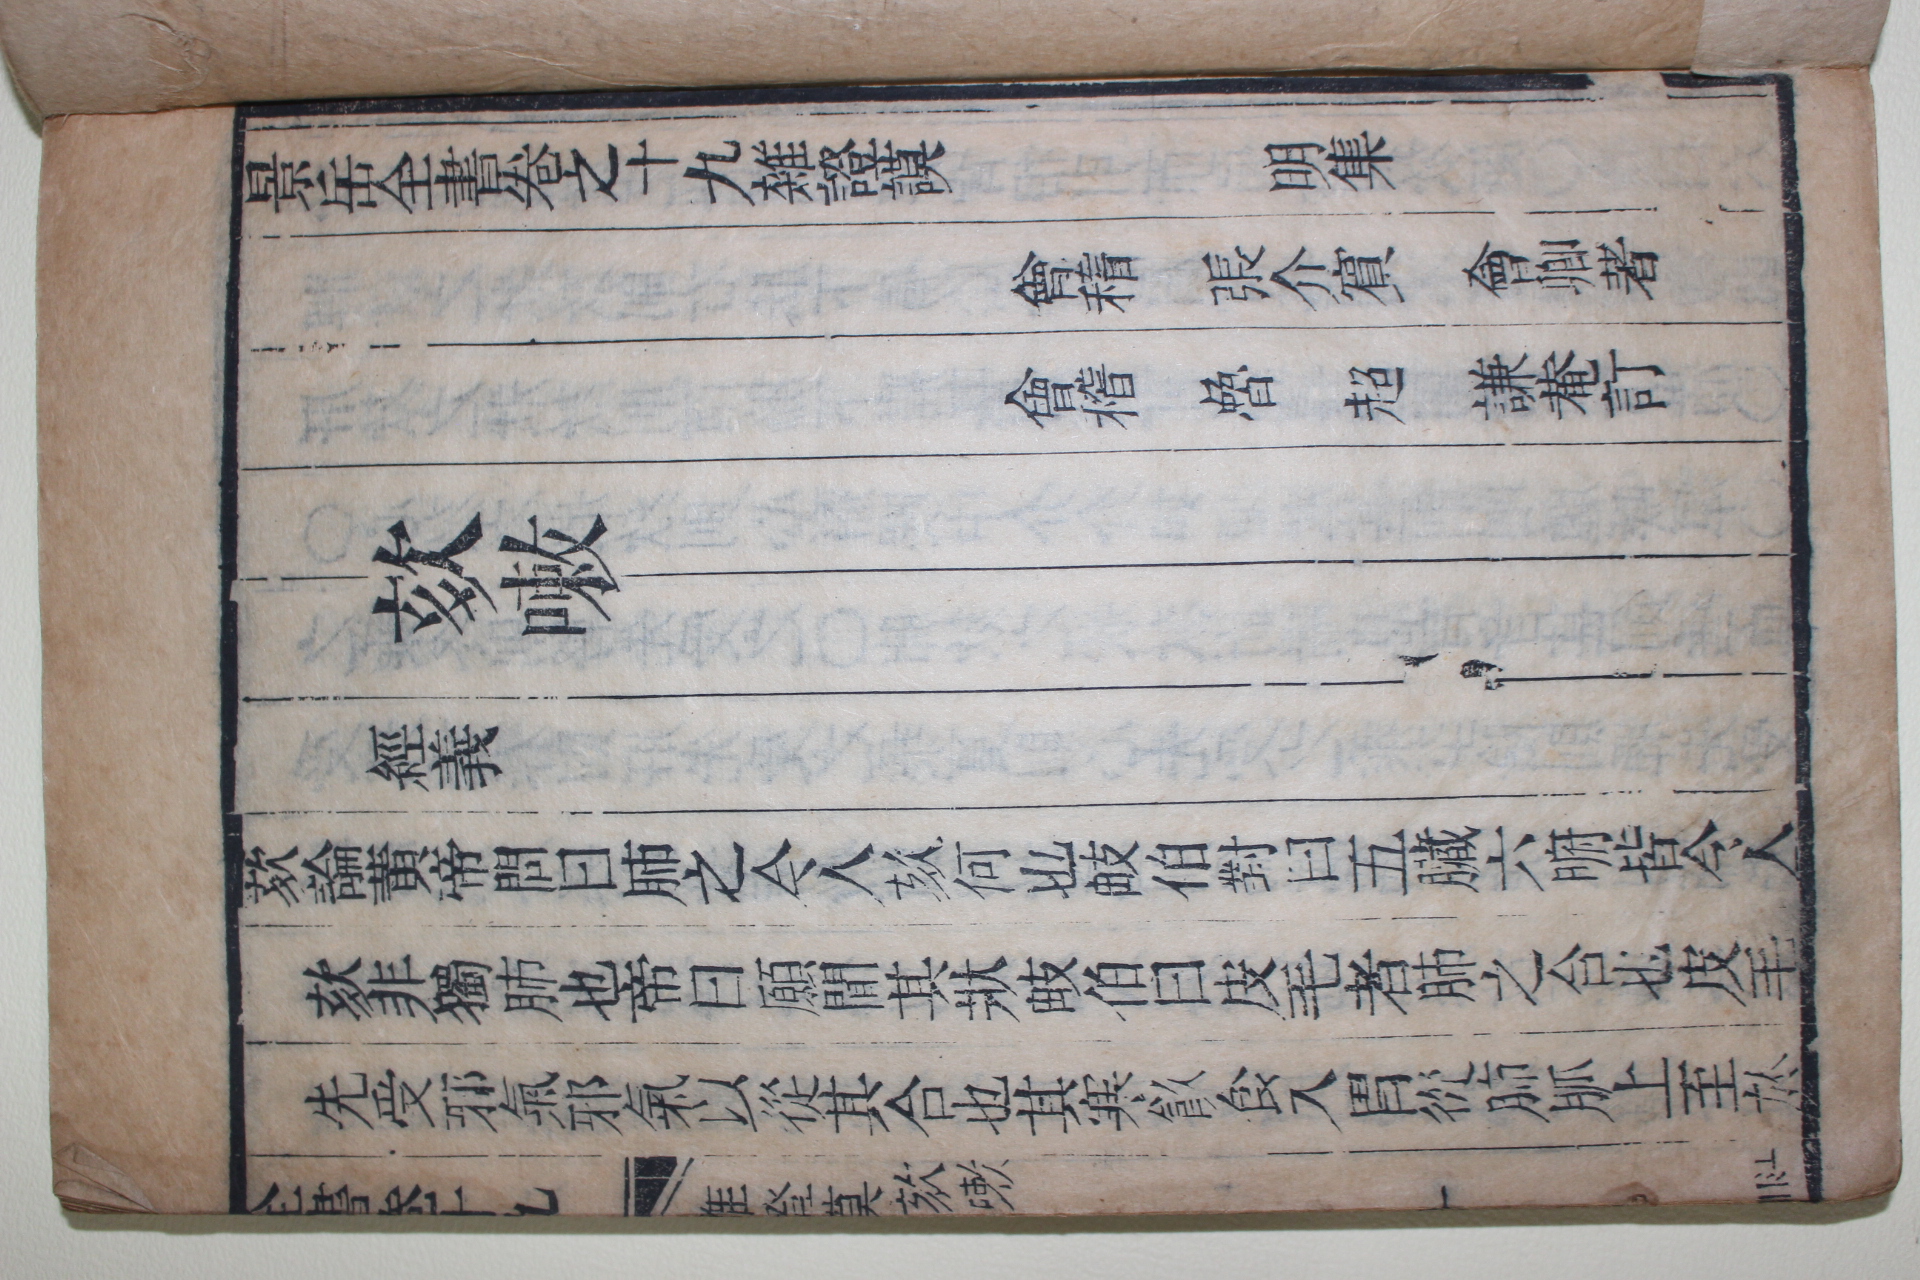 景岳全書卷之十九雜證謨　明集
會稽　張介賓　會卿著
會稽　魯　超　謙菴訂
欬嗽
經義
欬論黃帝問曰肺之令人欬何也岐伯對曰五臟六腑皆令人
欬非獨肺也帝曰願聞其狀岐伯曰皮毛者肺之合也皮毛
先受邪氣邪氣以從其合也其寒飲食入胃從肺脈上至於
全書卷十九　雜證謨　欬嗽　一